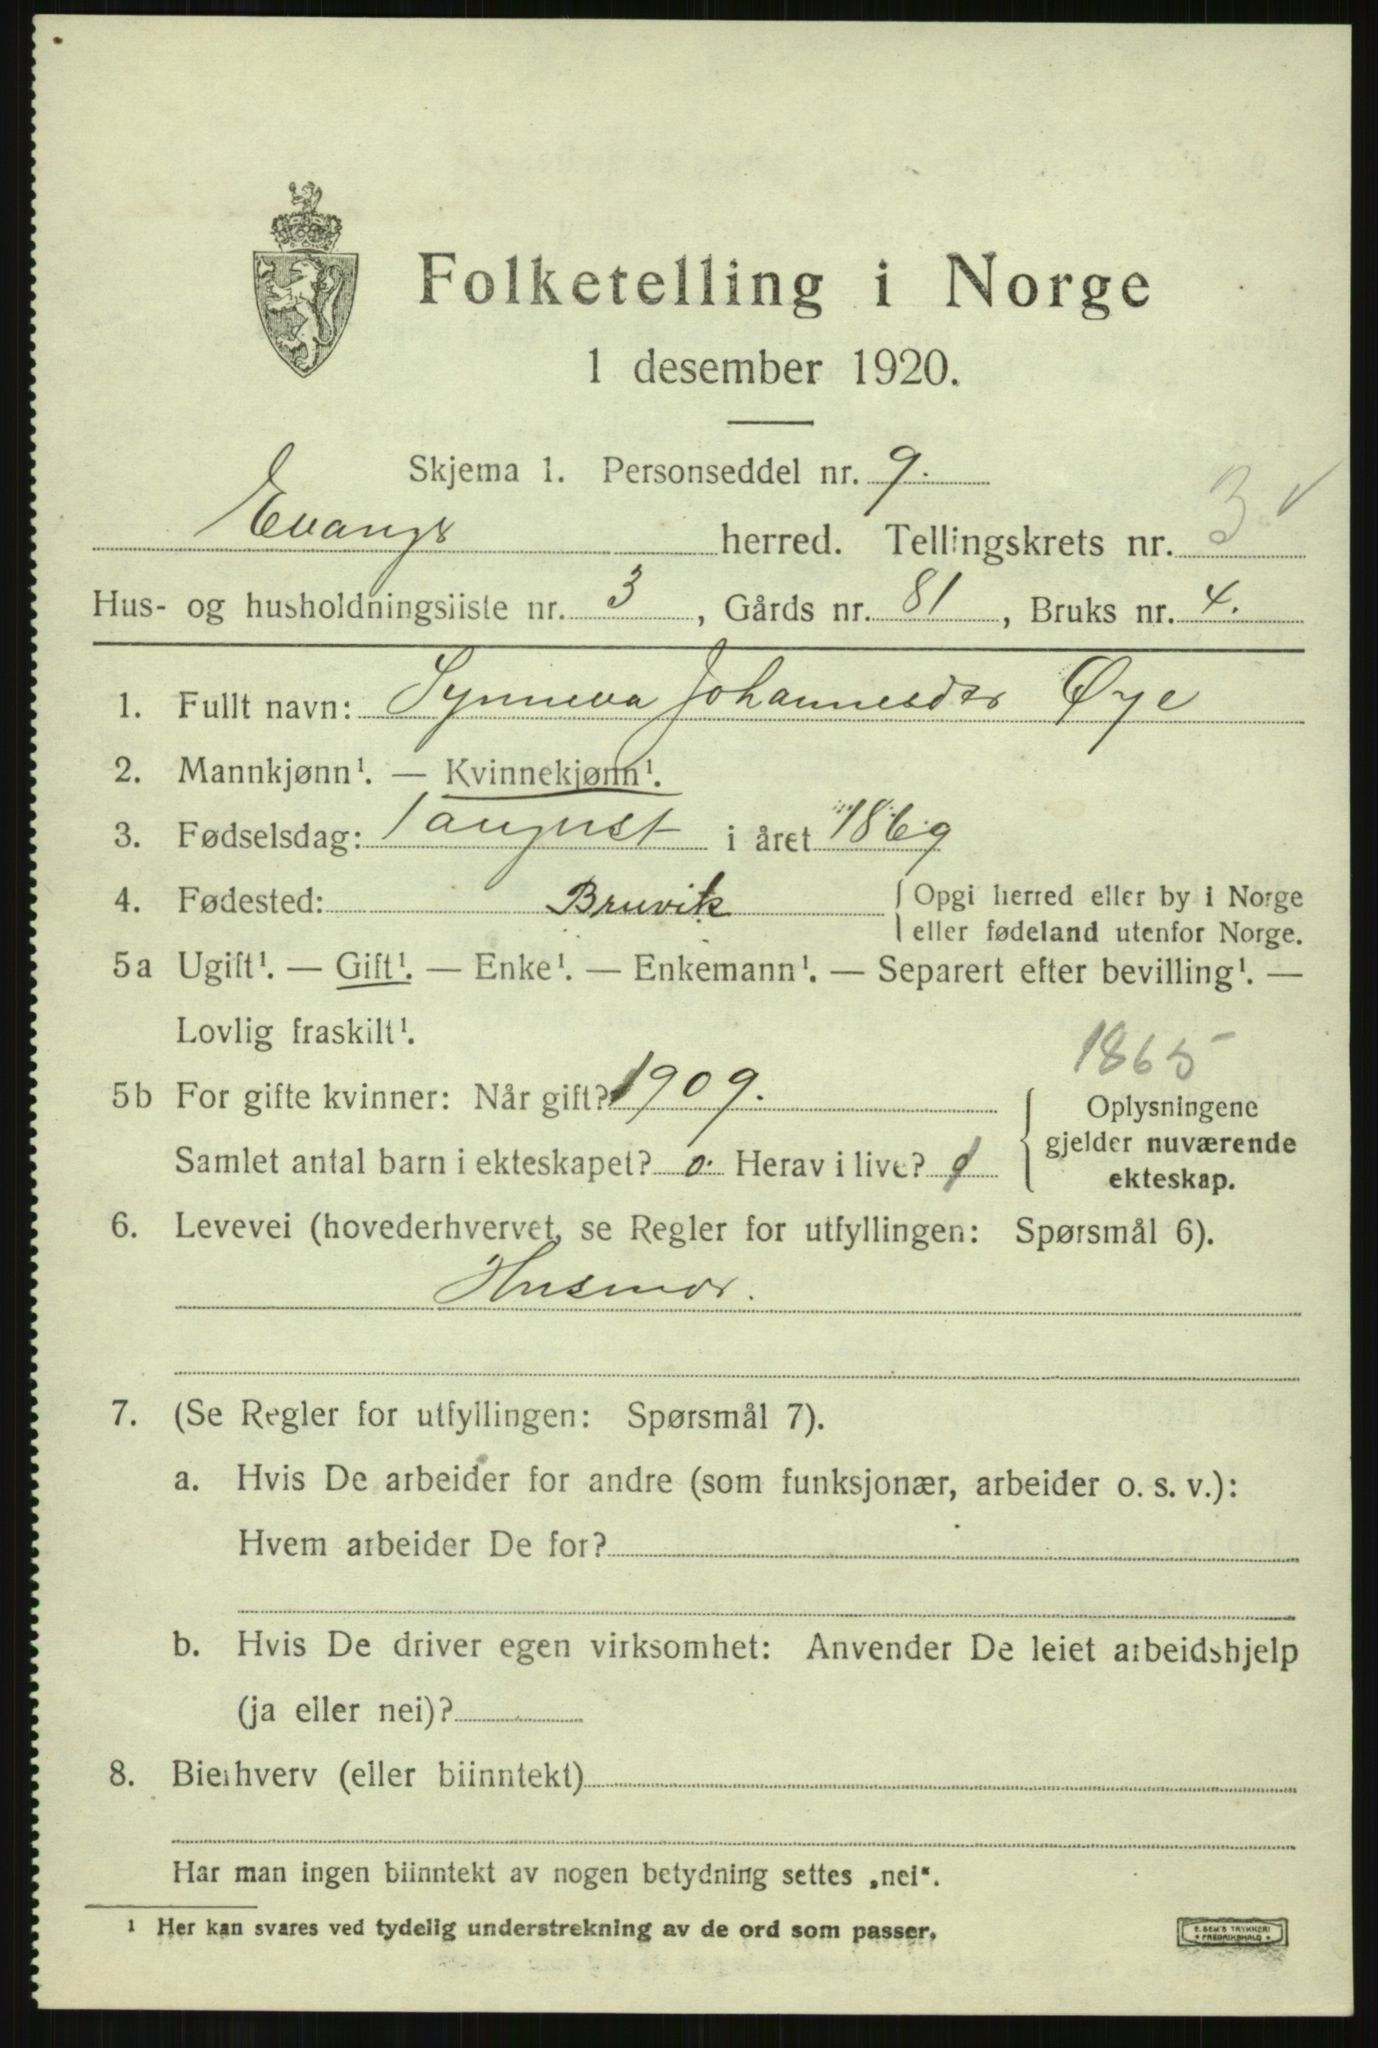 Folketelling i Norge
1 desember 1920.
Skjema 1. Personseddel nr. 9.
Evanger herred. Tellingskrets nr. 3 v
Hus- og husholdningsliste nr. 3, Gårds nr. 81, Bruks nr. 4.
1. Fullt navn: Synneva Johannesdtr Øye
2. Mannkjønn¹. — Kvinnekjønn¹.
3. Fødselsdag: 1 august i året 1869
4. Fødested: Bruvik { Opgi herred eller by i Norge
eller fødeland utenfor Norge.
5a Ugift¹. — Gift¹. — Enke¹. — Enkemann¹. — Separert efter bevilling¹. —
Lovlig fraskilt¹.
1865
5b For gifte kvinner: Når gift? 1909. { Oplysningene
Samlet antal barn i ekteskapet? 0. Herav i live? gjelder nuværende
ekteskap.
6. Levevei (hovederhvervet, se Regler for utfyllingen: Spørsmål 6).
Husmor.
7. (Se Regler for utfyllingen: Spørsmål 7).
a. Hvis De arbeider for andre (som funksjonær, arbeider o. s. v.):
Hvem arbeider De for?
b. Hvis De driver egen virksomhet: Anvender De leiet arbeidshjelp
(ja eller nei)?
8. Bierhverv (eller biinntekt)
Har man ingen biinntekt av nogen betydning settes „nei“.
¹ Her kan svares ved tydelig understrekning av de ord som passer.
E. SEM'S TRYKKERI
FREDRIKSHALD